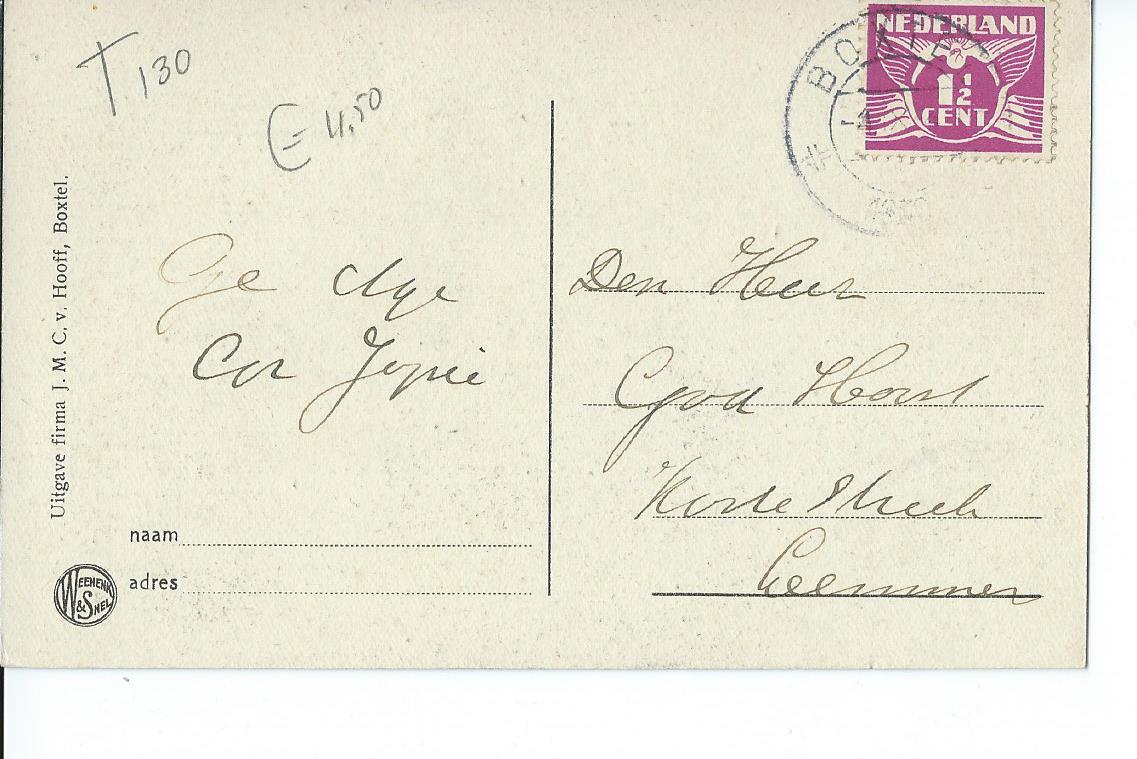 T 130
€ 4,50
Uitgave firma J. M. C. v. Hooff, Boxtel.
Cor Jopie
naam
adres
WEENENK & SNEL
BOXTEL
NEDERLAND
1½
CENT
Den Heer
Horst
Korte Streek
Leemmer